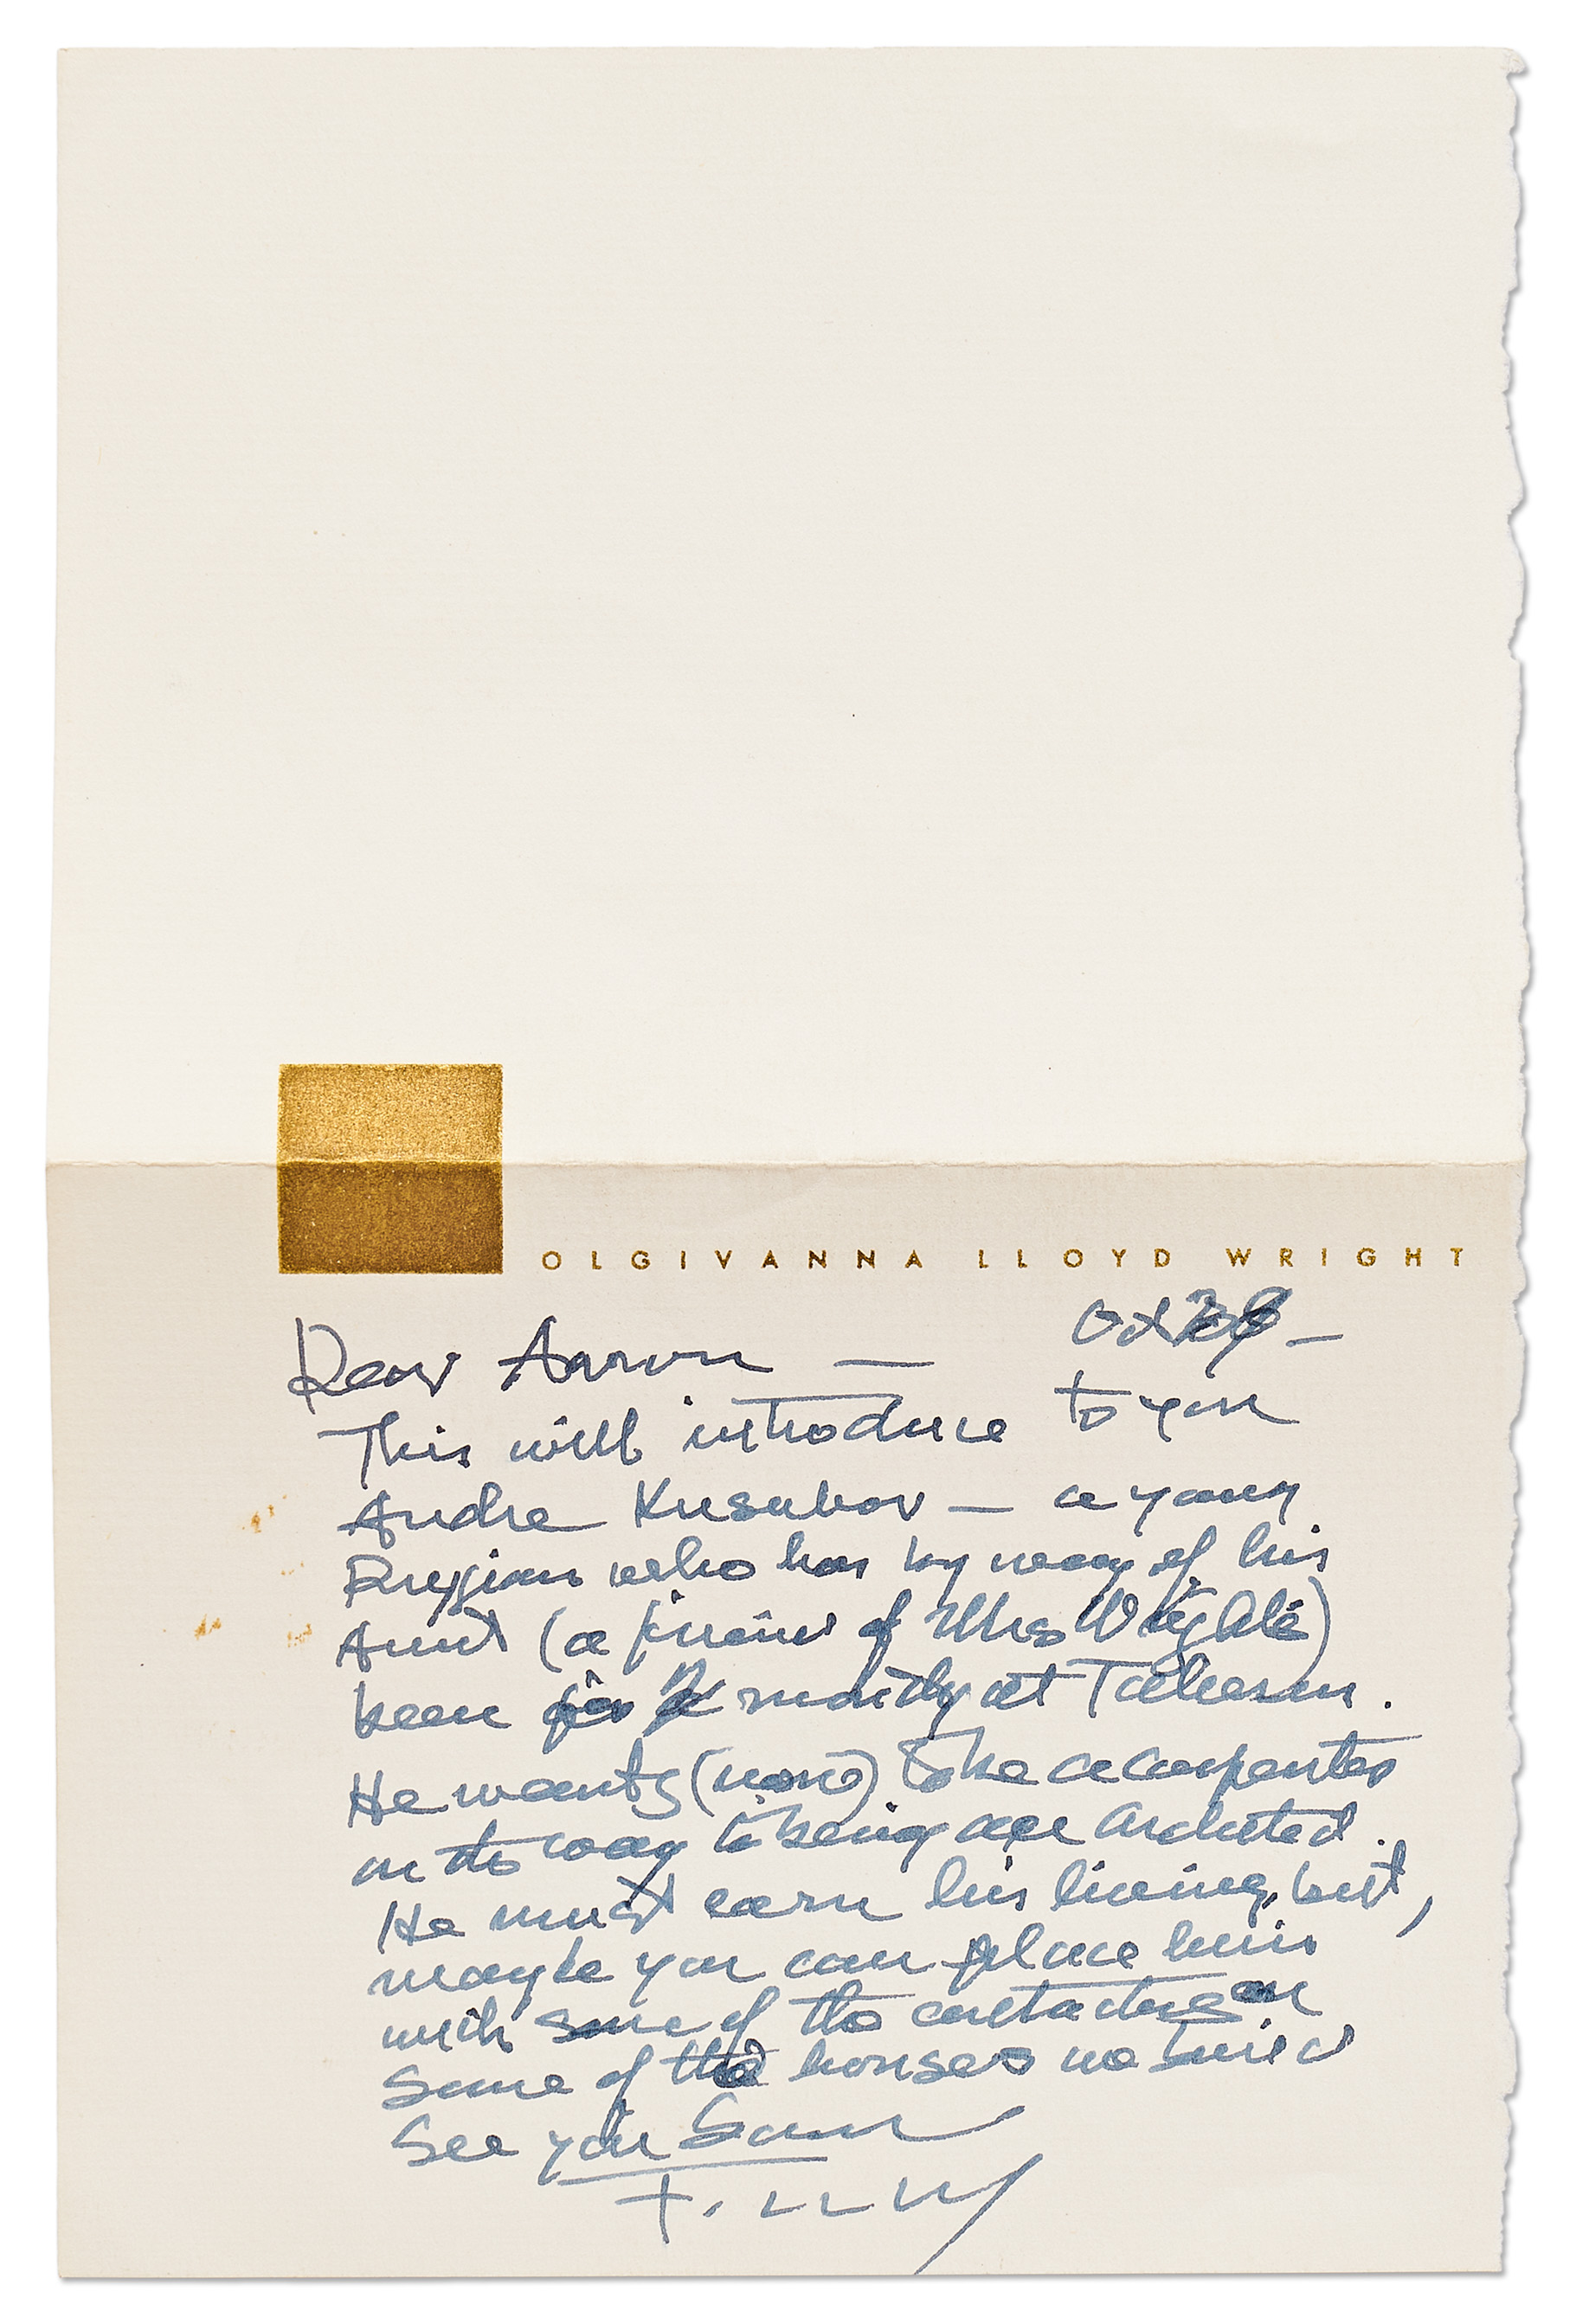 OLGIVANNA LLOYD WRIGHT
Oct —
Dear Aaron —
This will introduce to you
Andre Kusubov — a young
Russian who has by way of his
Aunt (a friend of Mrs Wright's)
been for months at Taliesin.
He wants (now) to be a carpenter
on the way to being an Architect.
He must earn his living, but,
maybe you can place him
with some of the contractors on
some of the houses we build
See you Soon
F. LL W